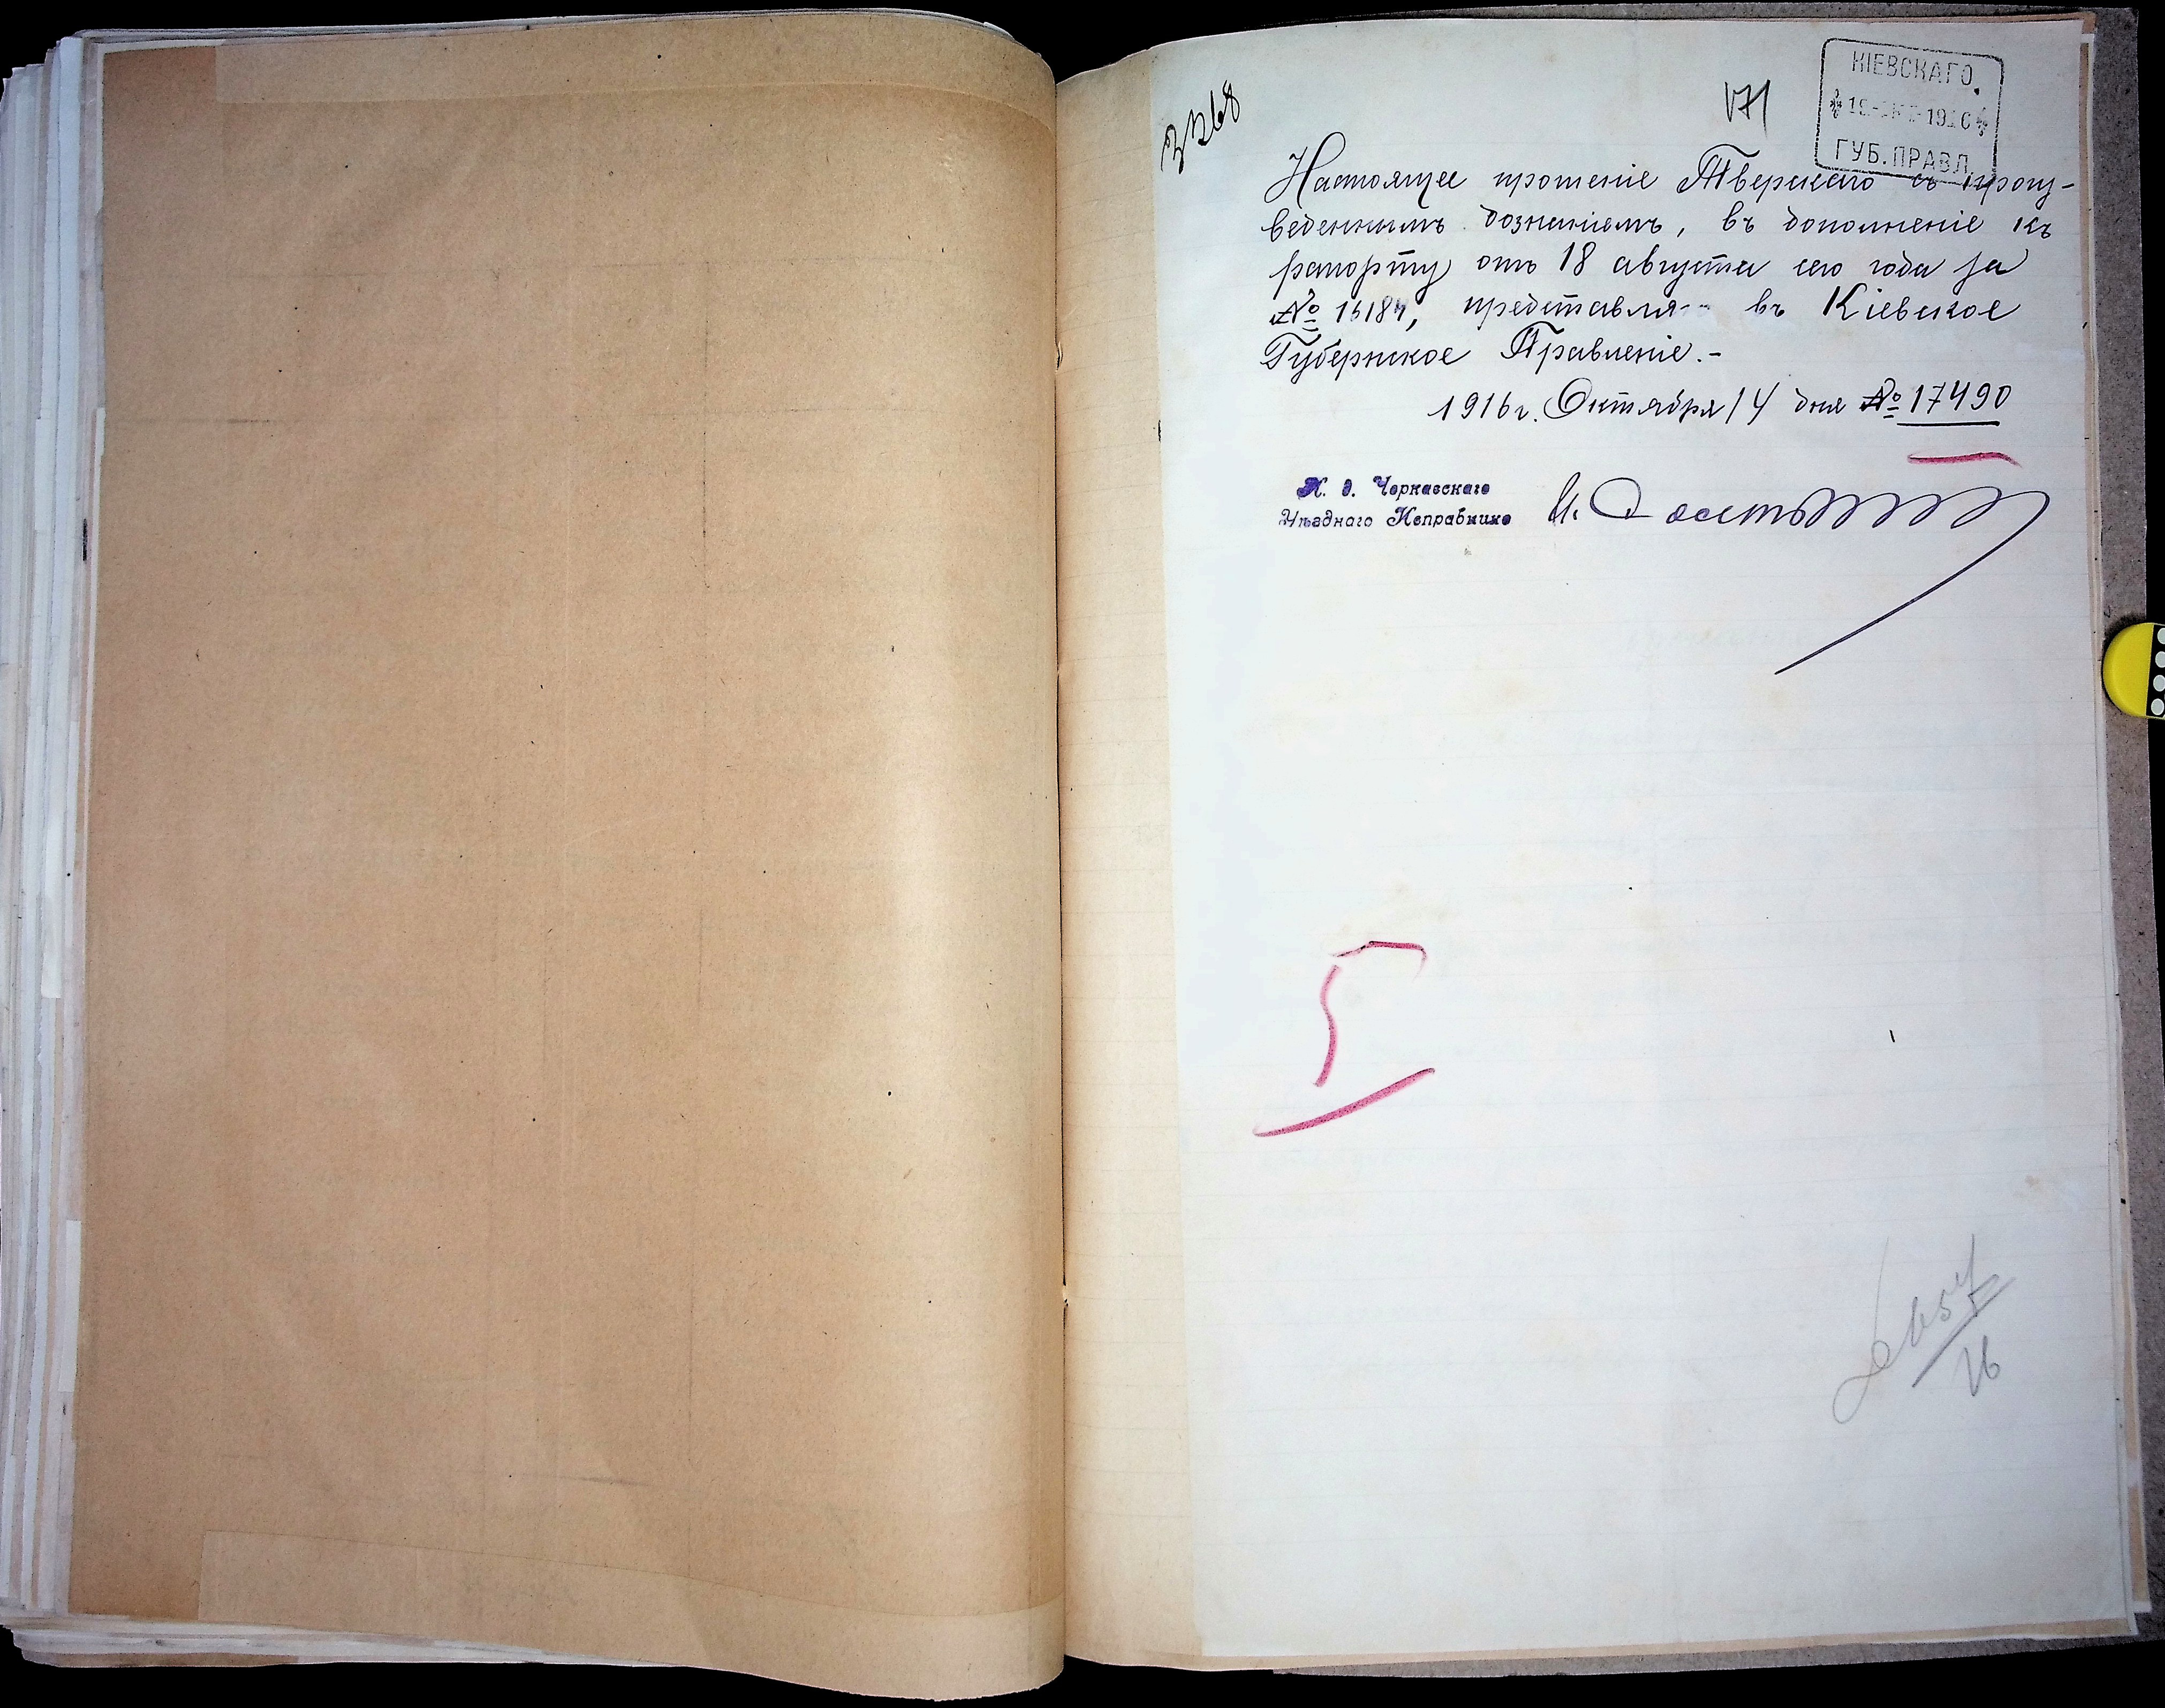 171
КІЕВСКАГО
ГУБ. ПРАВЛ.
Настоящее прошеніе Тверскаго съ произ-
веденнымъ дознаніемъ, въ дополненіе къ
рапорту отъ 18 августа сего года за
№ 15184, представля въ Кіевское
Губернское Правленіе.-
1916 г. Октября 14 дня № 17490
И. д. Черкасскаго
Уѣзднаго Исправника